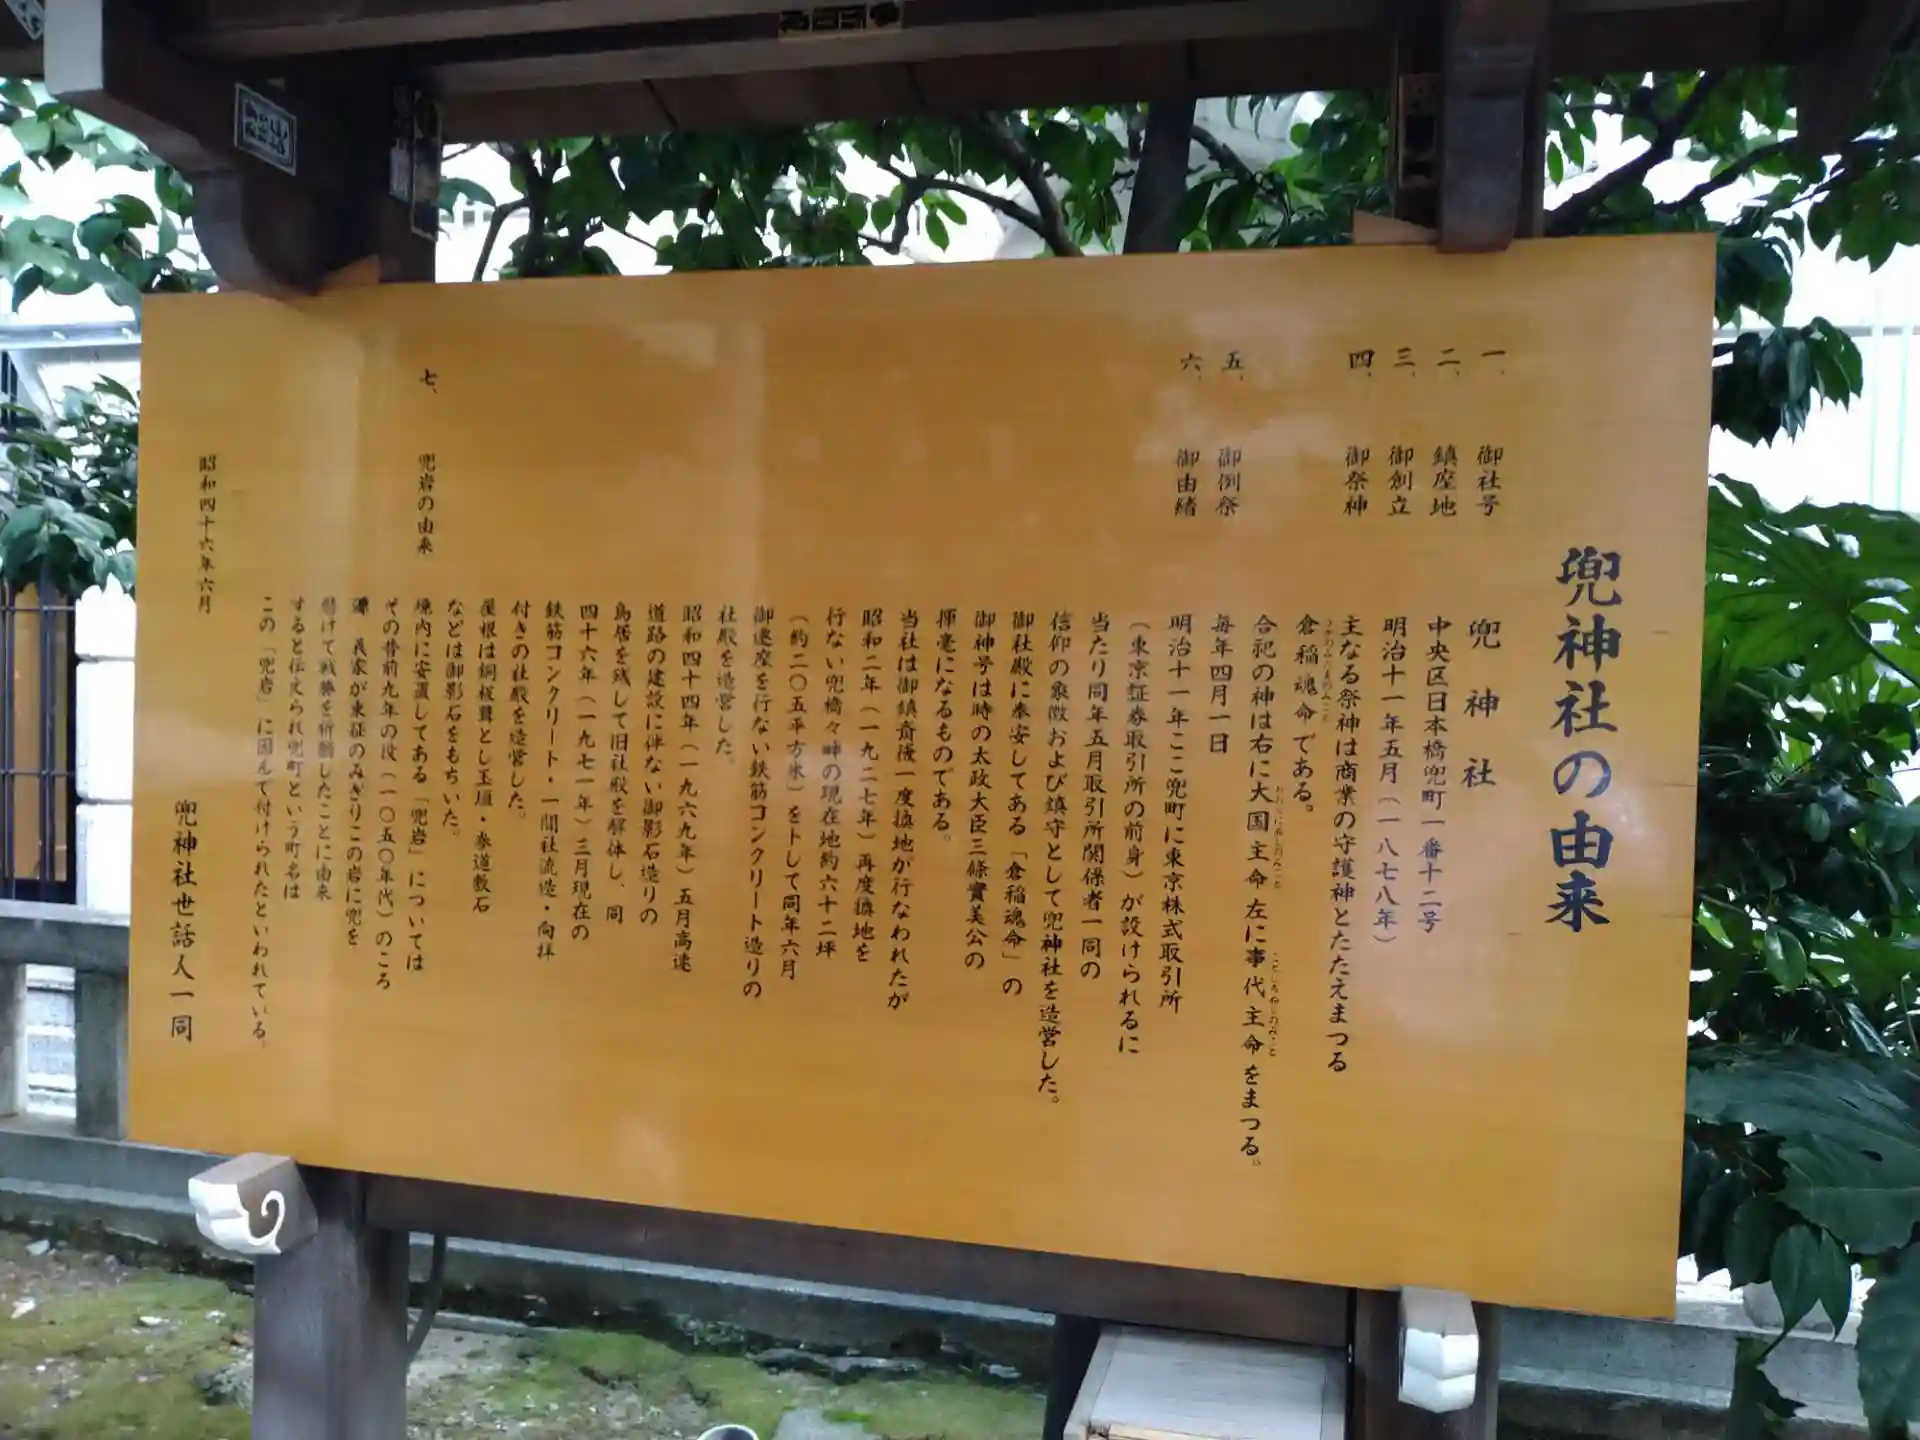 兜神社の由来
一、 御社号 兜神社
二、 鎮座地 中央区日本橋兜町一番十二号
三、 御創立 明治十一年五月(一八七八年)
四、 御祭神 主なる祭神は商業の守護神とたたえまつる
倉稲魂命である。
合祀の神は右に大国主命左に事代主命をまつる。
五、 御例祭 毎年四月一日
六、 御由緒 明治十一年ここ兜町に東京株式取引所
(東京証券取引所の前身)が設けられるに
当たり同年五月取引所関係者一同の
信仰の象徴および鎮守として兜神社を造営した。
御社殿に奉安してある「倉稲魂命」の
御神号は時の太政大臣三條實美公の
揮毫になるものである。
当社は御鎮斎後一度換地が行なわれたが
昭和二年(一九二七年)再度換地を
行ない兜橋々畔の現在地約六十二坪
(約二〇五平方米)を卜して同年六月
御遷座を行ない鉄筋コンクリート造りの
社殿を造営した。
昭和四十四年(一九六九年)五月高速
道路の建設に伴ない御影石造りの
鳥居を残して旧社殿を解体し、同
四十六年(一九七一年)三月現在の
鉄筋コンクリート・一間社流造・向拝
付きの社殿を造営した。
屋根は銅板葺とし玉垣・参道敷石
などは御影石をもちいた。
七、 兜岩の由来 境内に安置してある「兜岩」については
その昔前九年の役(一〇五〇年代)のころ
源 義家が東征のみぎりこの岩に兜を
懸けて戦勝を祈願したことに由来
すると伝えられ兜町という町名は
この「兜岩」に因んで付けられたといわれている。
昭和四十六年六月
兜神社世話人一同